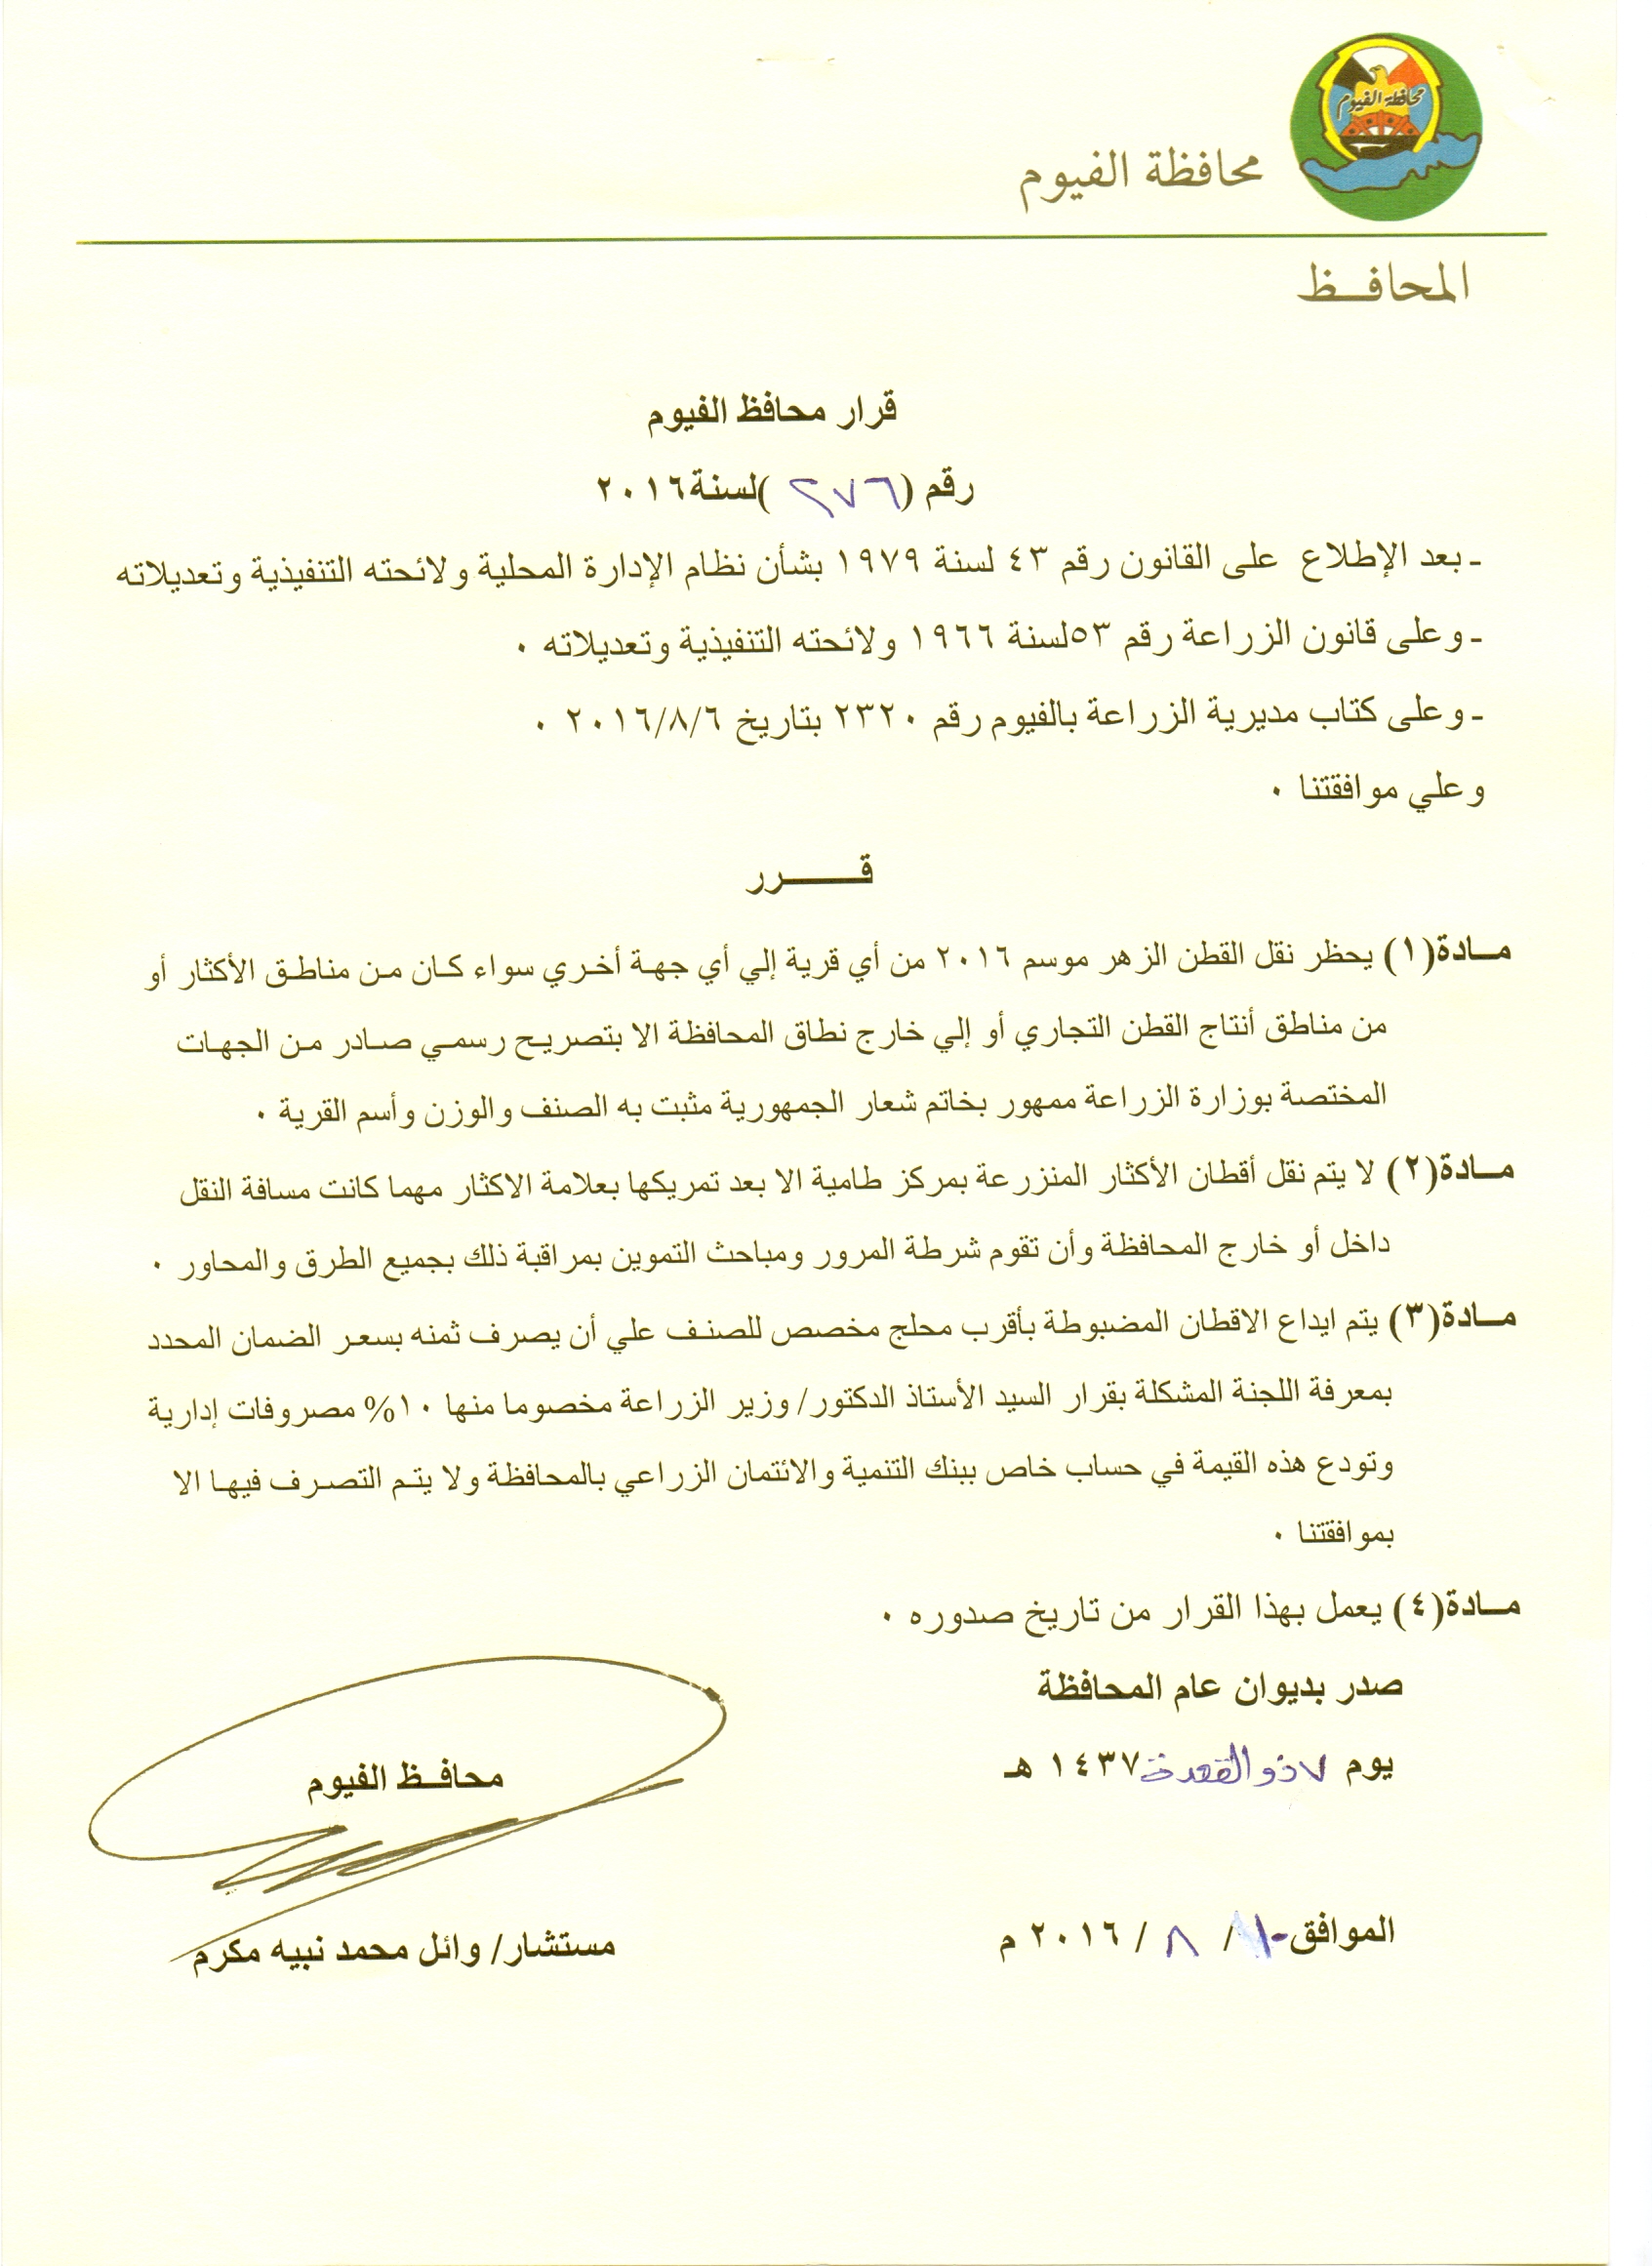 محافظة الفيوم
محافظة الفيوم
المحافـــظ
قرار محافظ الفيوم
رقم (٢٧٦)لسنة٢٠١٦
ـ بعد الإطلاع على القانون رقم ٤٣ لسنة ١٩٧٩ بشأن نظام الإدارة المحلية ولائحته التنفيذية وتعديلاته
ـ وعلى قانون الزراعة رقم ٥٣لسنة ١٩٦٦ ولائحته التنفيذية وتعديلاته ٠
ـ وعلى كتاب مديرية الزراعة بالفيوم رقم ٢٣٢٠ بتاريخ ٢٠١٦/٨/٦ ٠
وعلي موافقتنا ٠
قـــــــرر
مــادة(١) يحظر نقل القطن الزهر موسم ٢٠١٦ من أي قرية إلي أي جهة أخري سواء كان من مناطق الأكثار أو
من مناطق أنتاج القطن التجاري أو إلي خارج نطاق المحافظة الا بتصريح رسمي صادر من الجهات
المختصة بوزارة الزراعة ممهور بخاتم شعار الجمهورية مثبت به الصنف والوزن وأسم القرية ٠
مــادة(٢) لا يتم نقل أقطان الأكثار المنزرعة بمركز طامية الا بعد تمريكها بعلامة الاكثار مهما كانت مسافة النقل
داخل أو خارج المحافظة وأن تقوم شرطة المرور ومباحث التموين بمراقبة ذلك بجميع الطرق والمحاور ٠
مــادة(٣) يتم ايداع الاقطان المضبوطة بأقرب محلج مخصص للصنف علي أن يصرف ثمنه بسعر الضمان المحدد
بمعرفة اللجنة المشكلة بقرار السيد الأستاذ الدكتور/ وزير الزراعة مخصوما منها ١٠% مصروفات إدارية
وتودع هذه القيمة في حساب خاص ببنك التنمية والائتمان الزراعي بالمحافظة ولا يتم التصرف فيها الا
بموافقتنا ٠
مــادة(٤) يعمل بهذا القرار من تاريخ صدوره ٠
صدر بديوان عام المحافظة
يوم ٧ ذو القعدة ١٤٣٧ هـ
محافــظ الفيوم
الموافق ١٠/ ٨ / ٢٠١٦ م
مستشار/ وائل محمد نبيه مكرم